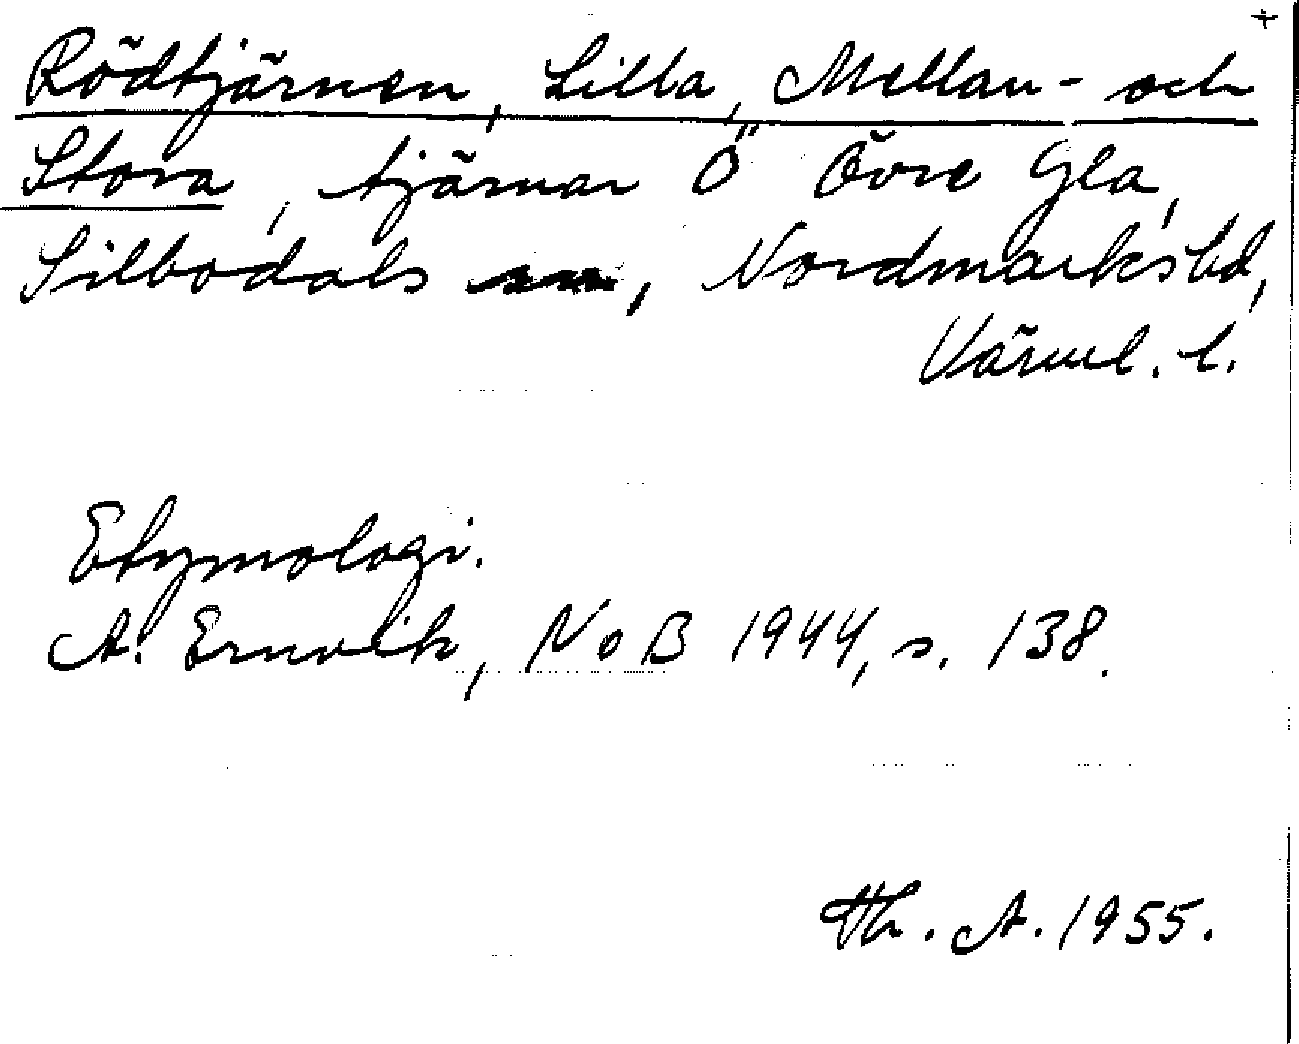 +
Rödtjärnen, Lilla, Mellan- och
Stora, tjärnar Ö Övre Gla,
Silbodals sn, Nordmarks hd,
Värml. l.
Etymologi.
A. Ernvik, NoB 1944, s. 138.
Th. A. 1955.